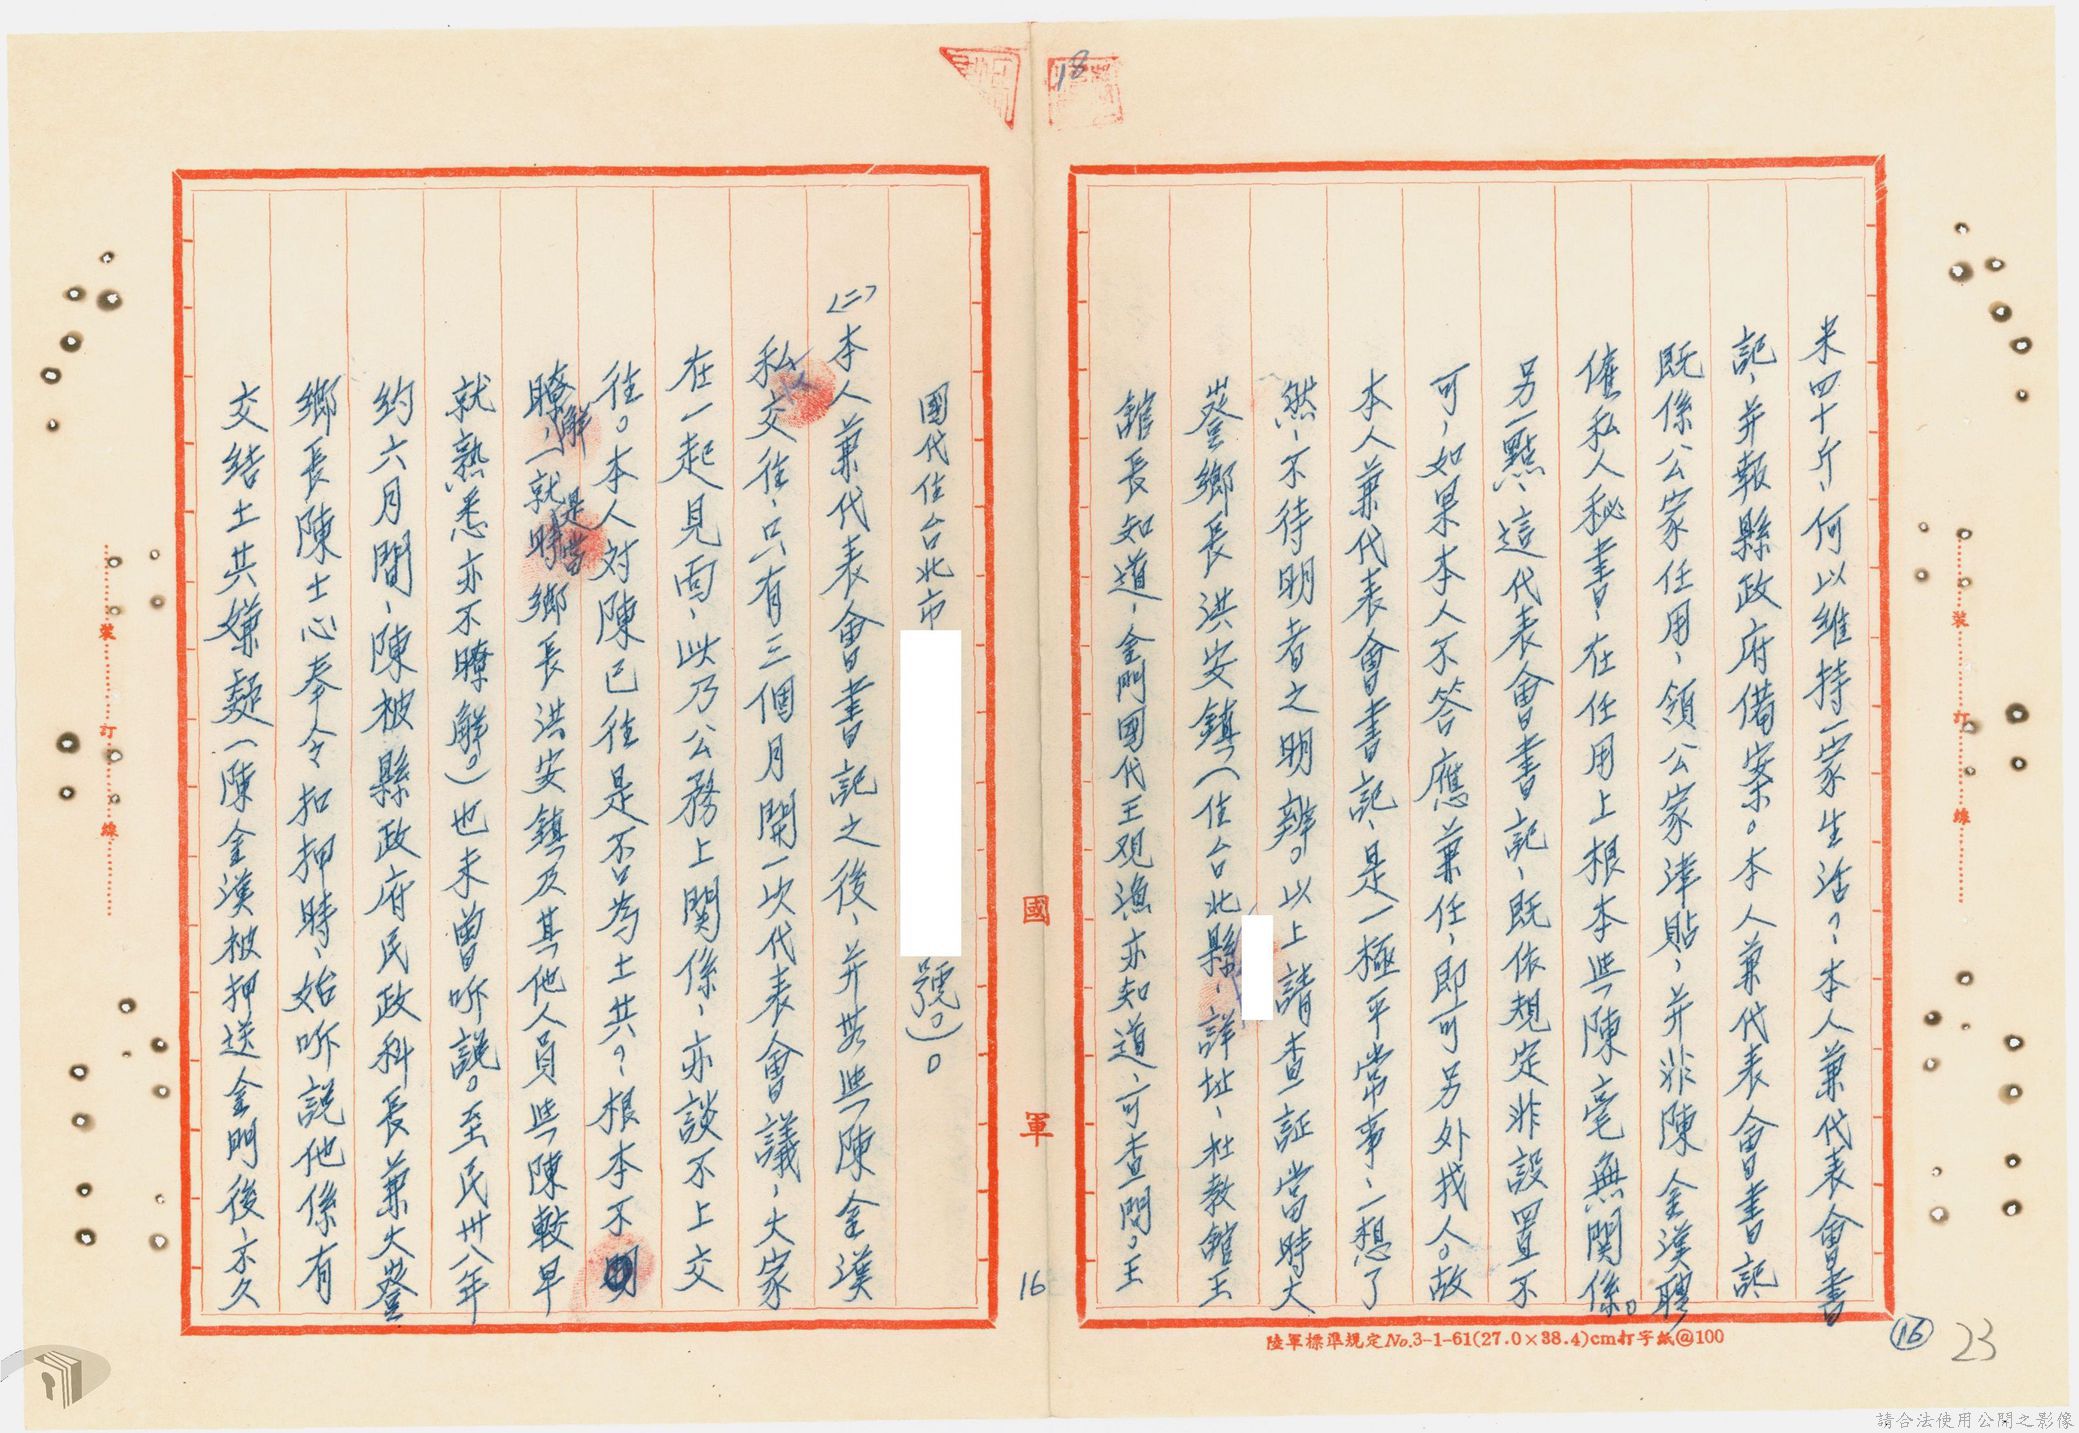 18
米四十斤、何以維持一家生活?、本人兼代表會書
記、并報縣政府備案。本人兼代表會書記
既係公家任用、領公家津貼、并非陳金漢聘
僱私人秘書、在任用上根本與陳毫無關係。
另一點、這代表會書記、既依規定非設置不
可、如果本人不答應兼任、即可另外找人。故
本人兼代表會書記、是一極平常事、一想了
然、不待明者之明辨。以上請查証當時大
登鄉長洪安鎮(住台北縣、詳址、社教館王
舘長知道、金門國代王观漁亦知道、可查問。王
國代住台北市
號。)。
(二)本人兼代表會書記之後、并無與陳金漢
私交往、只有三個月開一次代表會議、大家
在一起見面、此乃公務上関係、亦談不上交
往。本人对陳已往是否為土共?根本不明
瞭解、就是當時鄉長洪安鎮及其他人員與陳較早
就熟悉亦不瞭解。)也未曾听説。至民卅八年
約六月間、陳被縣政府民政科長兼大登
鄉長陳士心奉令扣押時、始听説他係有
交結土共嫌疑(陳金漢被押送金門後、不久
裝 訂 線
裝 訂 線
國軍
16
陸軍標準規定No.3-1-61(27.0×38.4)cm打字紙@100
16
23
請合法使用公開之影像